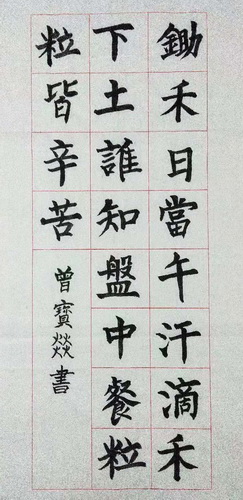 鋤禾日當午汗滴禾
下土誰知盤中餐粒
粒皆辛苦
曾寶燚書